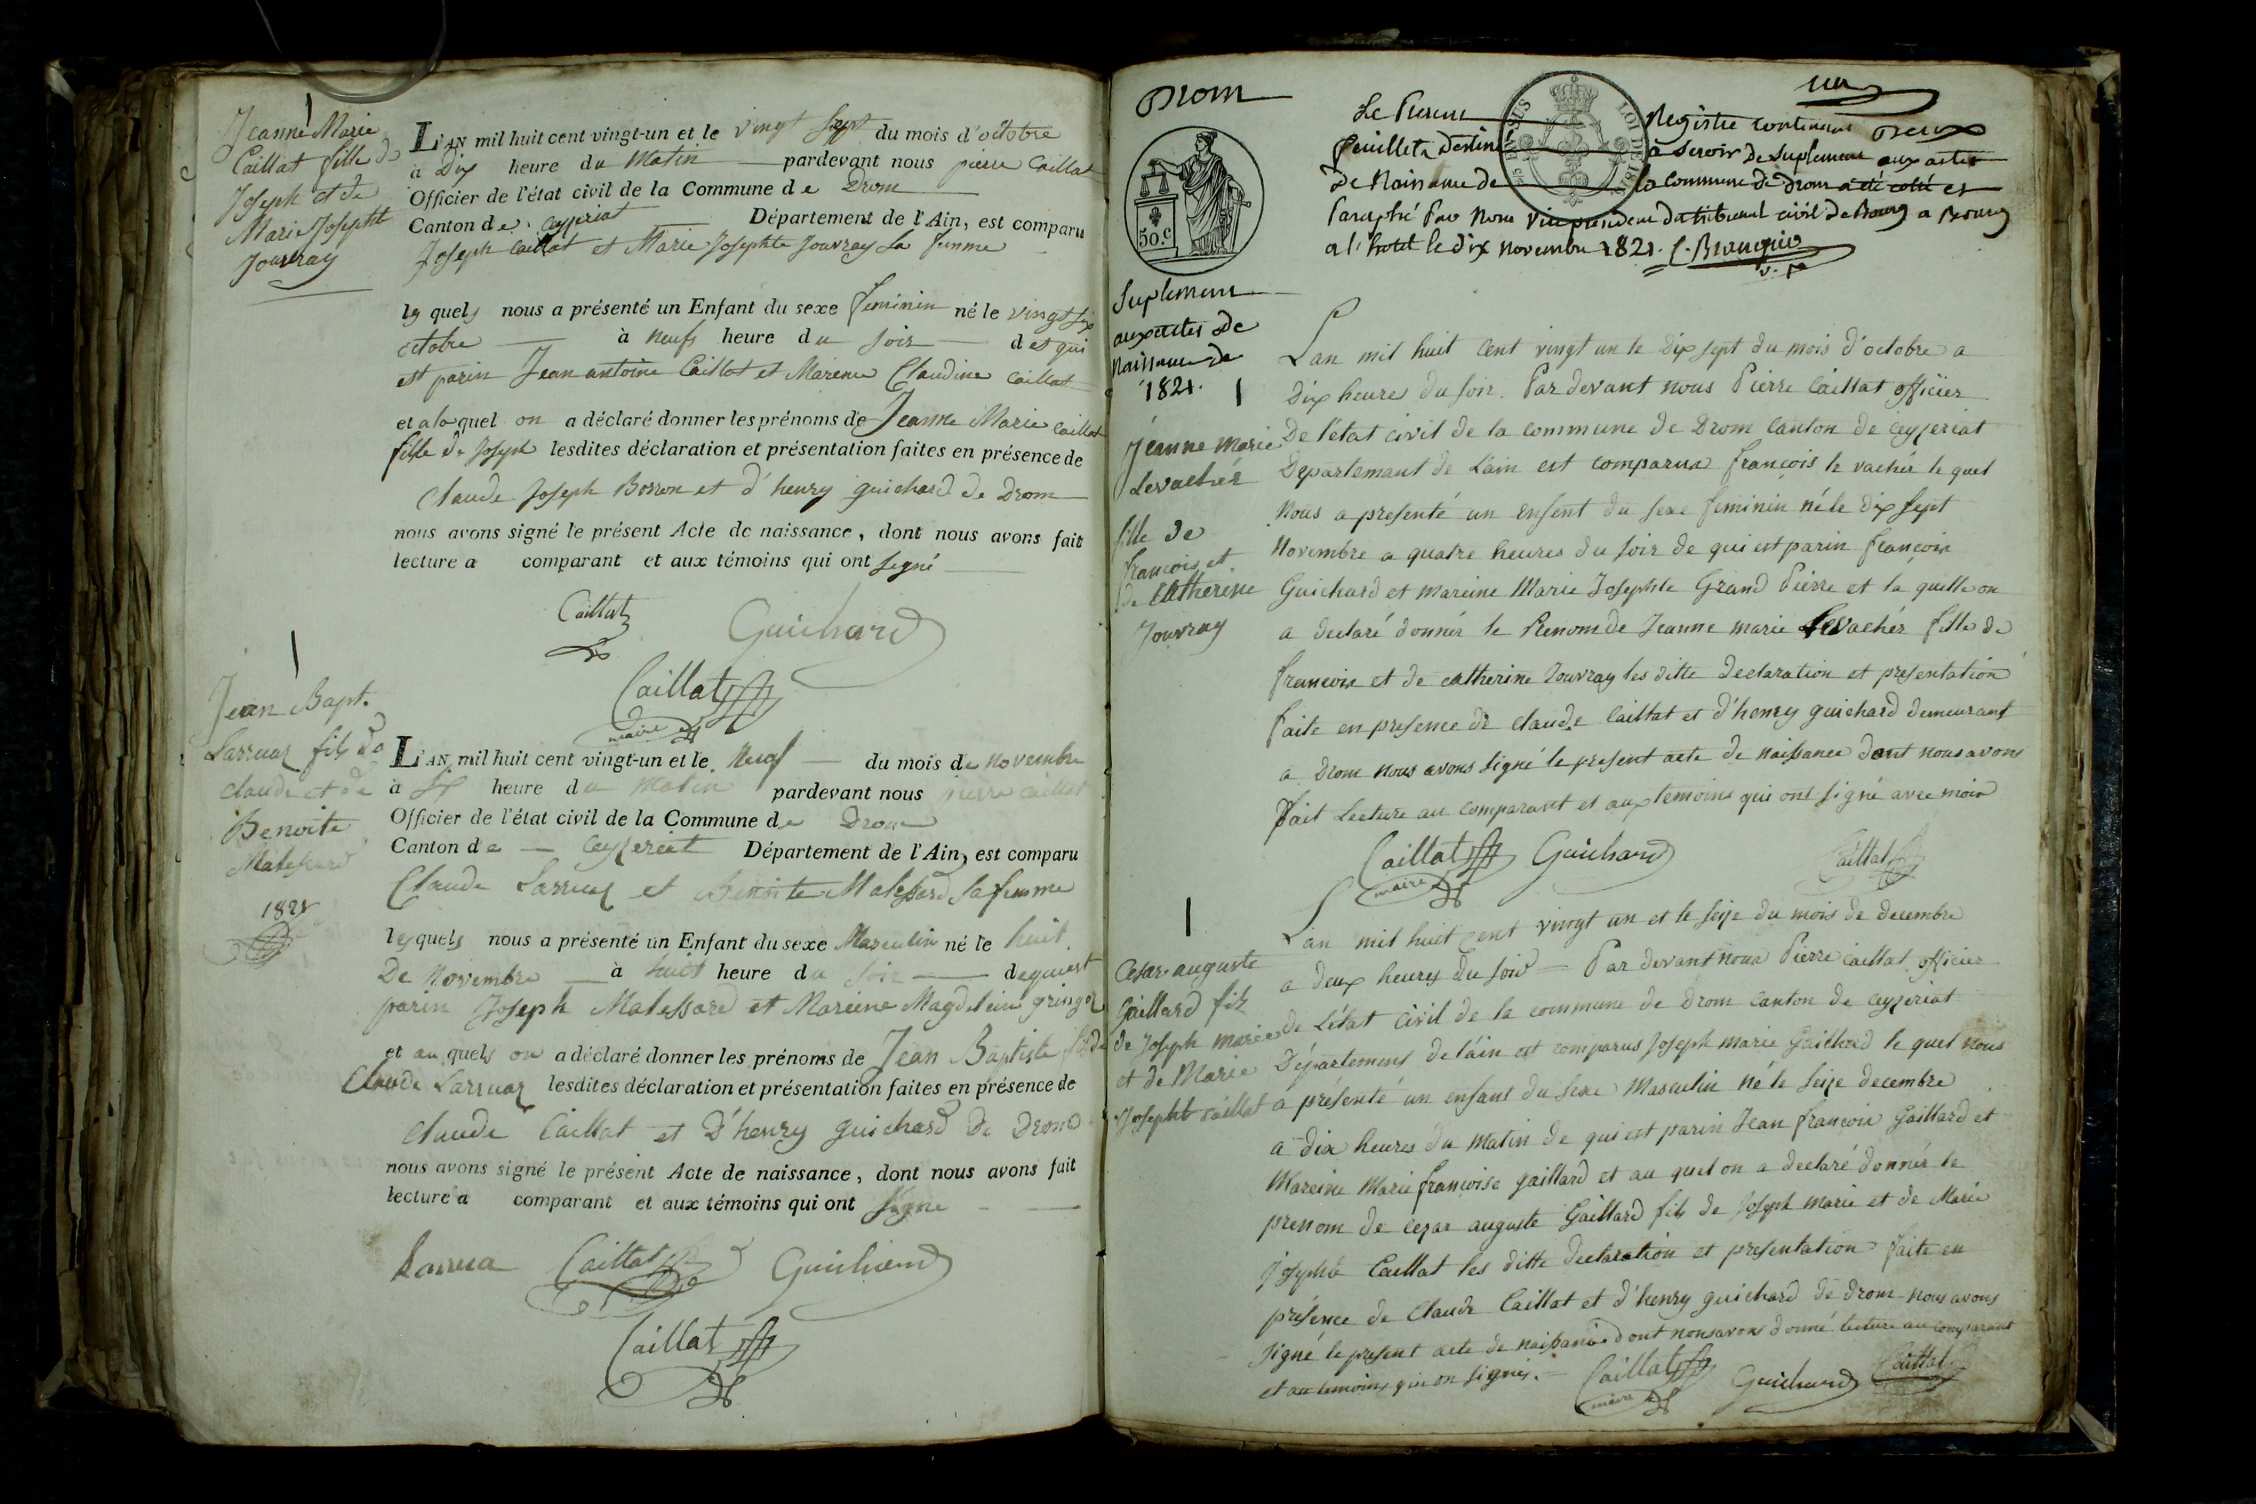 Jeanne Marie
Caillat fille de
Joseph et de
Marie Josephte
Jouvray
L'AN mil huit cent vingt-un et le vingt Sept du mois d'octobre
à Dix heure du Matin pardevant nous pierre Caillat
Officier de l'état civil de la Commune de Drom
Canton de ceyzeriat Département de l'Ain, est comparu
Joseph Caillat et Marie Josephte Jouvray Sa femme
les quels nous a présenté un Enfant du sexe feminin né le vingt six
octobre à neufs heure du soir det qui
est parin Jean antoine Caillat et Mareine Claudine Caillat
et a la quel on a déclaré donner les prénoms de Jeanne Marie Caillat
fille de Joseph lesdites déclaration et présentation faites en présence de
Claude Joseph Borron et d'henry guichard de Drom
nous avons signé le présent Acte de naissance, dont nous avons fait
lecture a comparant et aux témoins qui ont signé
Caillat
Guichard
Caillat
maire
Jean Bapt.
Larruaz fils de
claude et de
Benoite
Malessard
1821
L'AN mil huit cent vingt-un et le Neuf du mois de novembre
à heure du Matin pardevant nous pierre caillat
Officier de l'état civil de la Commune de Drom
Canton de Ceyzeriat Département de l'Ain, est comparu
Claude Larruaz et Benoite Malessard Sa femme
lesquels nous a présenté un Enfant du sexe Masculin né le huit
De Novembre à huit heure du soir dequi est
parin Joseph Malessard et Mareine Magdeleine gringoz
et au quels on a déclaré donner les prénoms de Jean Baptiste fils de
Claude Larruaz lesdites déclaration et présentation faites en présence de
claude Caillat et D'henry guichard De Drom
nous avons signé le présent Acte de naissance, dont nous avons fait
lecture a comparant et aux témoins qui ont signé
Larrua Caillat Guichard
Caillat
Drom
50.c
LOI DE 1816
un
Le Present Registre contenant Deux
feuillets destiné à servir de suplement aux actes
de Naissance de la commune de Drom a été cotté et
Paraphé Par Nous vice president du tribunal civil de Bourg a Bourg
a l'hotel le dix novembre 1821.
Suplement
aux actes de
Naissance de
1821.
Jeanne marie
Levachér
fille de
francois et
de Catherine
Jouvray
Lan mil huit Cent vingt un le Dix sept du mois d'octobre a
Dix heures du soir. Par devant nous Pierre Caillat officier
De l'état civil de la commune de Drom Canton de ceyzeriat
Departemant de L'ain est comparus françois le vachér le quel
Nous a presenté un enfent du sexe feminin né le Dix sept
Novembre a quatre heures du soir de qui est parin françois
Guichard et mareine Marie Josephte Grand Pierre et la quelle on
a declaré donnér le Prenom de Jeanne marie Levachér fille de
françois et de catherine Jouvray les ditte declaration et presentation
faite en presence de claude Caillat et d'henry guichard demeurant
a Drom nous avons signé le present acte de naissance dont nous avons
fait Lecture au comparant et aux temoins qui ont signé avec moi
Caillat Guichard Caillat
maire
Cesar auguste
Gaillard fils
de Joseph marie
et de Marie
Josepht caillat
Lan mil huit cent vingt un et le seize du mois de decembre
a deux heures du soir Par devant nous Pierre caillat officier
de L'état civil de la commune de Drom canton de ceyzeriat
Département de l'áin est comparus Joseph marie Gaillard le quel nous
a présenté un enfant du sexe Masculin né le seize decembre
a dix heures du matin de qui est parin Jean françois Gaillard et
Mareine Marie françoise gaillard et au quel on a declaré donnér le
prenom de cezar auguste Gaillard fils de Joseph marie et de Marie
Josephte Caillat les ditte declaration et presentation faite en
présence de Claude Caillat et d'henry guichard de drom nous avons
signé le present acte de naissance dont nous avons donné lecture au comparant
et au temoins qui on signés.
Caillat Guichard Caillat
maire